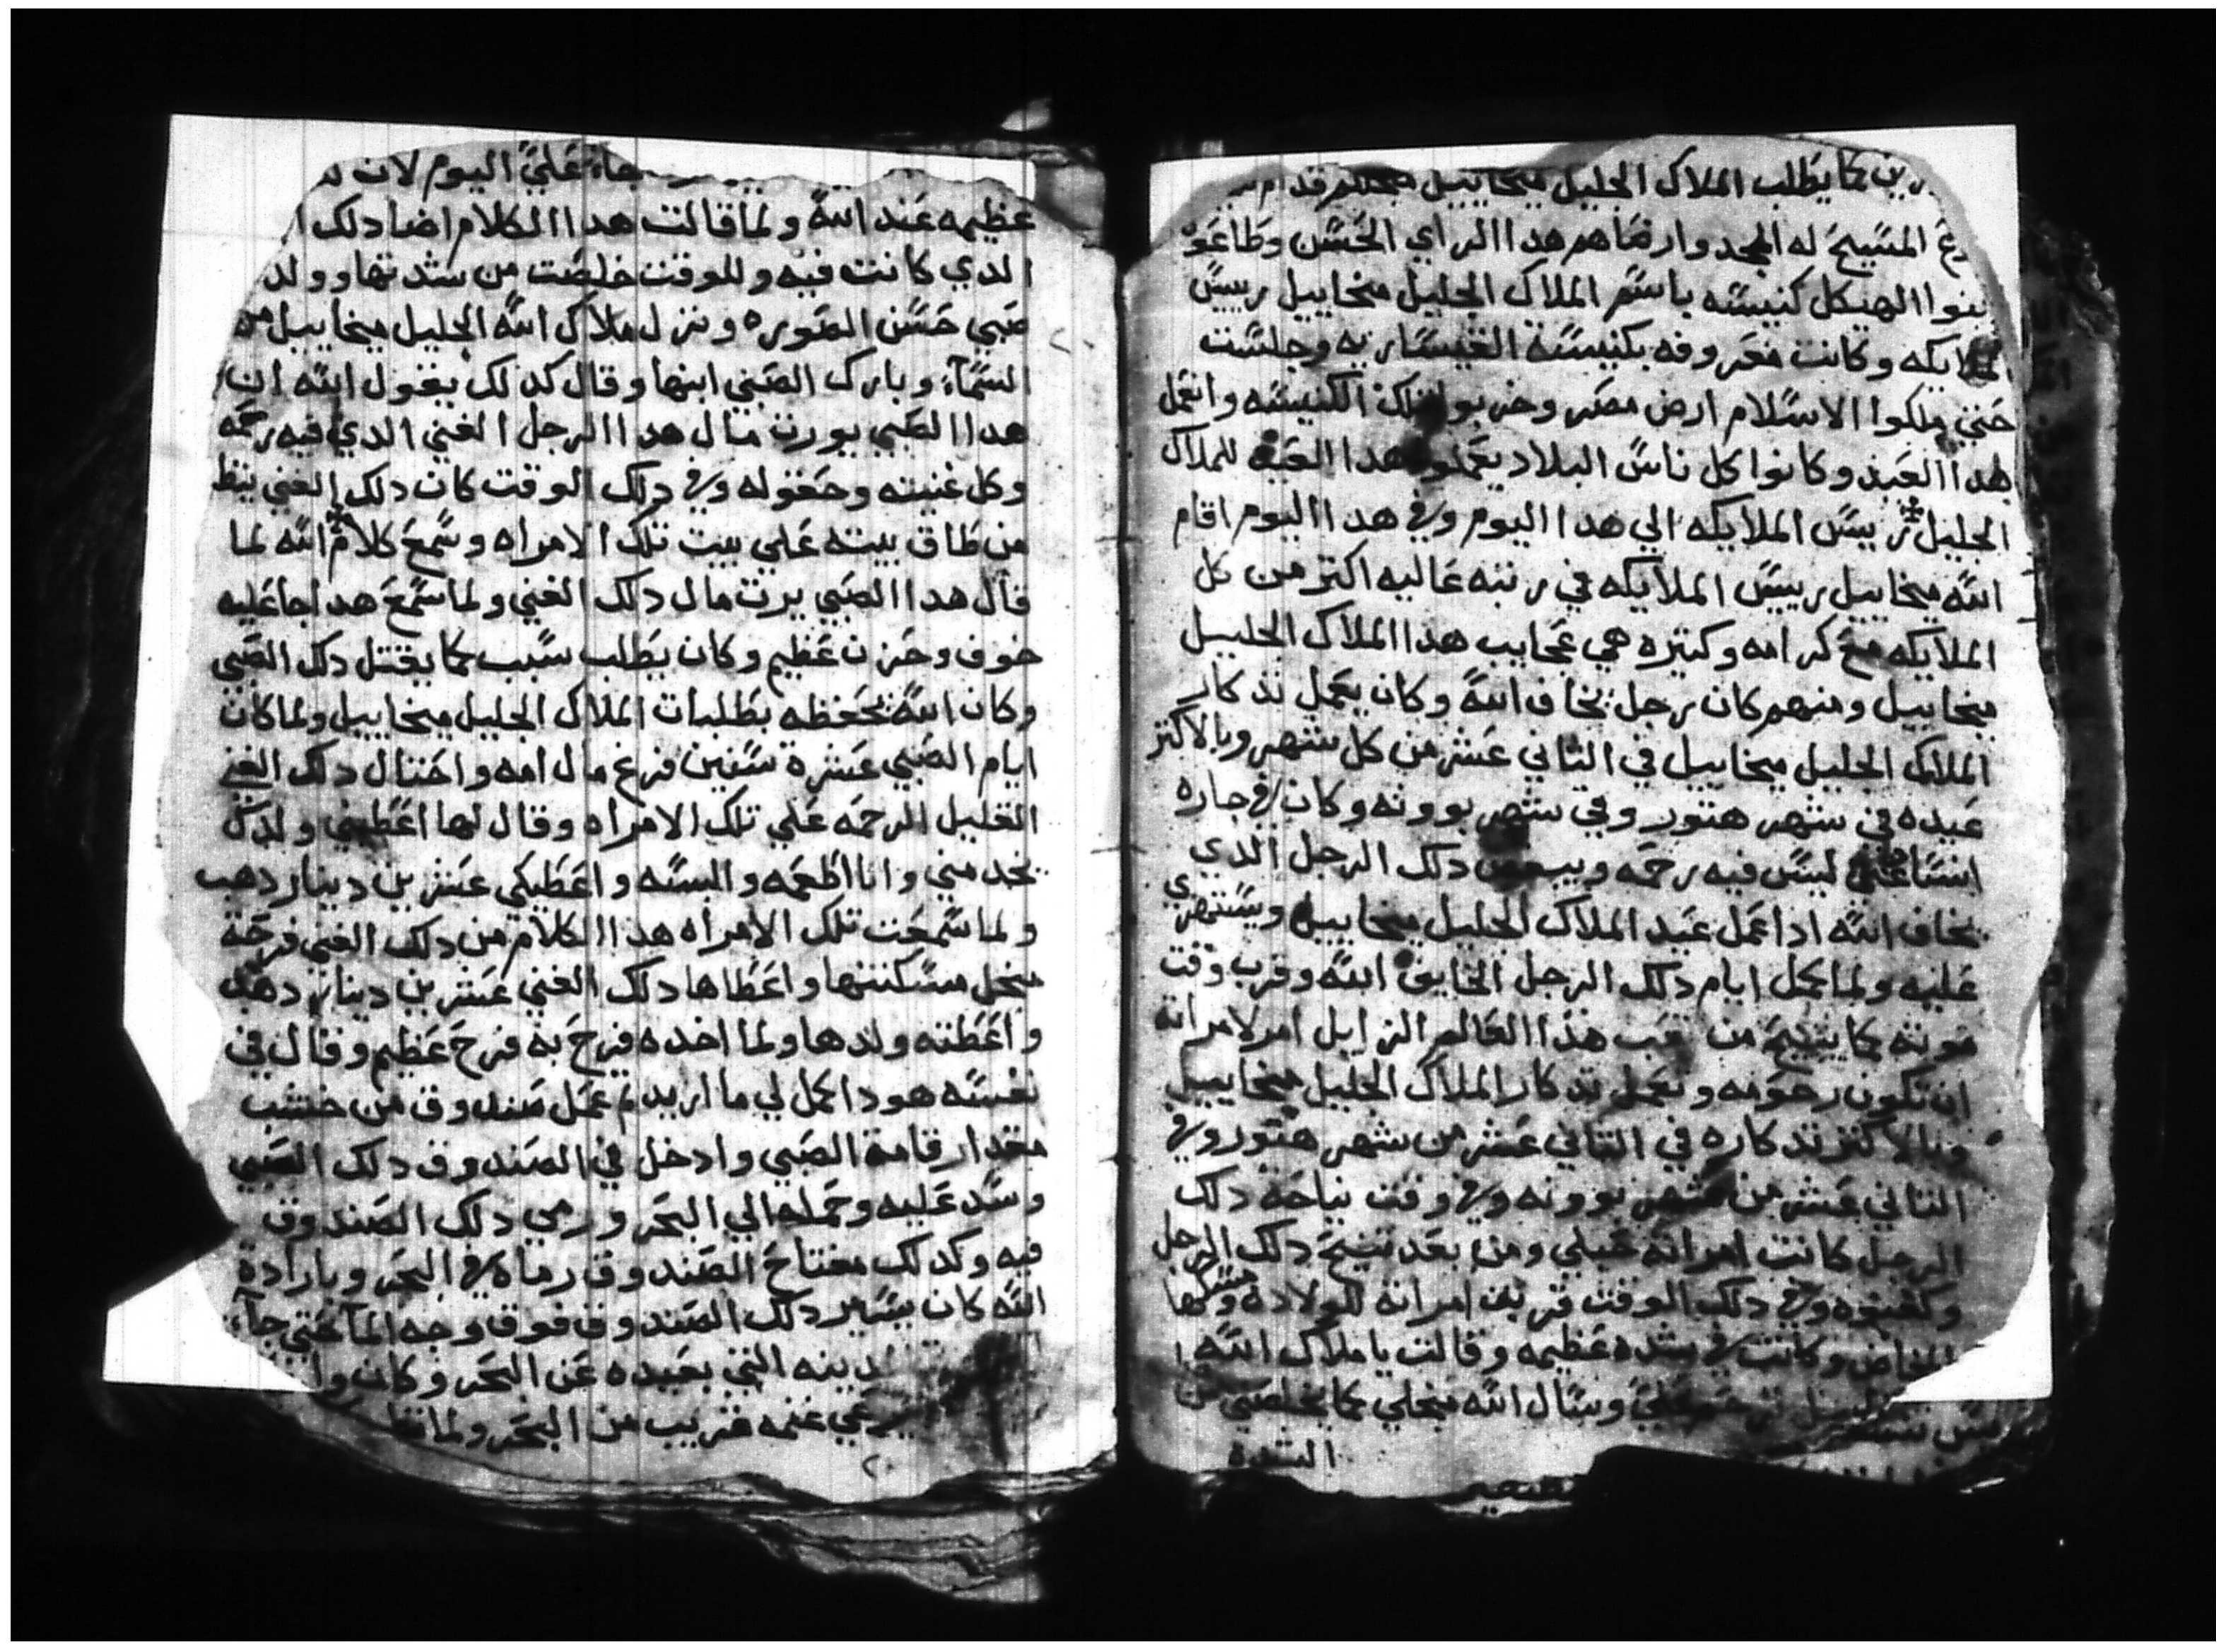 كما يطلب الملاك الجليل ميخاييل
المسيح له المجد وارضاهم هدا الراي الحسن وطاعوه
بنوا الهيكل كنيسه باسم الملاك الجليل ميخاييل رييس
لملايكه وكانت معروفه بكنيسة القيساريه وجلست
حتي ملكوا الاسلام ارض مصر وخربو تلك الكنيسه وانعمل
هدا العيد وكانوا كل ناس البلاد يعملو هدا العيد للملاك
الجليل رييس الملايكه الي هدا اليوم وفي هدا اليوم اقام
الله ميخاييل رييس الملايكه في رتبه عاليه اكتر من كل
الملايكه مع كرامه وكتيره هي عجايب هدا الملاك الجليل
ميخاييل ومنهم كان رجل يخاف الله وكان يعمل تدكار
الملاك الجليل ميخاييل في التاني عشر من كل شهر وبالاكتر
عيده في شهر هتور وفي شهر بوونه وكان في جاره
انسا غني ليس فيه رحمه دلك الرجل الدي
يخاف الله ادا عمل عيد الملاك الجليل ميخاييل ويستهري
عليه ولما كمل ايام دلك الرجل الخايف الله وقرب وقت
موته كما يتنيح من تعب هدا العالم الزايل امر لامراته
ان تكون رحومه وتعمل تدكار الملاك الجليل ميخاييل
وبالاكتر تدكاره في التاني عشر من شهر هتور وفي
التاني عشر من شهر بوونه وفي وقت نياحة دلك
الرجل كانت امراته حبلي ومن بعد تنيح دلك الرجل
وكفنوه وفي دلك الوقت قربت امراته للولاده ومسكها
المخاض وكانت في شده عظيمه وقالت يا ملاك الله
وسال الله ميحلي كما يخلصني من
الشده
جاه علي اليوم لان
عظيمه عند الله ولما قالت هدا الكلام اضا دلك
الدي كانت فيه وللوقت خلصت من شدتها وولد
صبي حسن الصوره ونزل ملاك الله الجليل ميخاييل من
السمآء وبارك الصبي ابنها وقال كدلك يقول الله ان
هدا الصبي يورت مال هدا الرجل الغني الدي فيه رحمه
وكل غنيته وحقوله وفي دلك الوقت كان دلك الغني ينظ
من طاق بيته علي بيت تلك الامراه وسمع كلام الله لما
قال هدا الصبي يرت مال دلك الغني ولما سمع هدا جا عليه
خوف وحزن عظيم وكان يطلب سبب كما يقتل دلك الصبي
وكان الله يحفظه بطلبات الملاك الجليل ميخاييل ولما كان
ايام الصبي عشرة سنين فرغ مال امه واحتال دلك الغني
القليل الرحمه علي تلك الامراه وقال لها اعطيني ولدك
يخدمني وانا اطعمه والبسه واعطيكي عشرين دينار دهب
ولما سمعت تلك الامراه هدا الكلام من دلك الغني فرحة
منجل مسكنتها واعطاها دلك الغني عشرين دينار دهب
واعطته ولدها ولما اخده فرح به فرح عظيم وقال في
نفسه هودا كمل لي ما اريد تم عمل صندوق من خشب
مقدار قامة الصبي وادخل في الصندوق دلك الصبي
وسد عليه وحمله الي البحر ورمي دلك الصندوق
فيه وكدلك مفتاح الصندوق رماه في البحر وبارادة
الله كان يسير دلك الصندوق فوق وجه المآ حتي جآء
لدينه التي بعيده عن البحر وكان وا
يرعي غنمه قريب من البحر ولما نظ